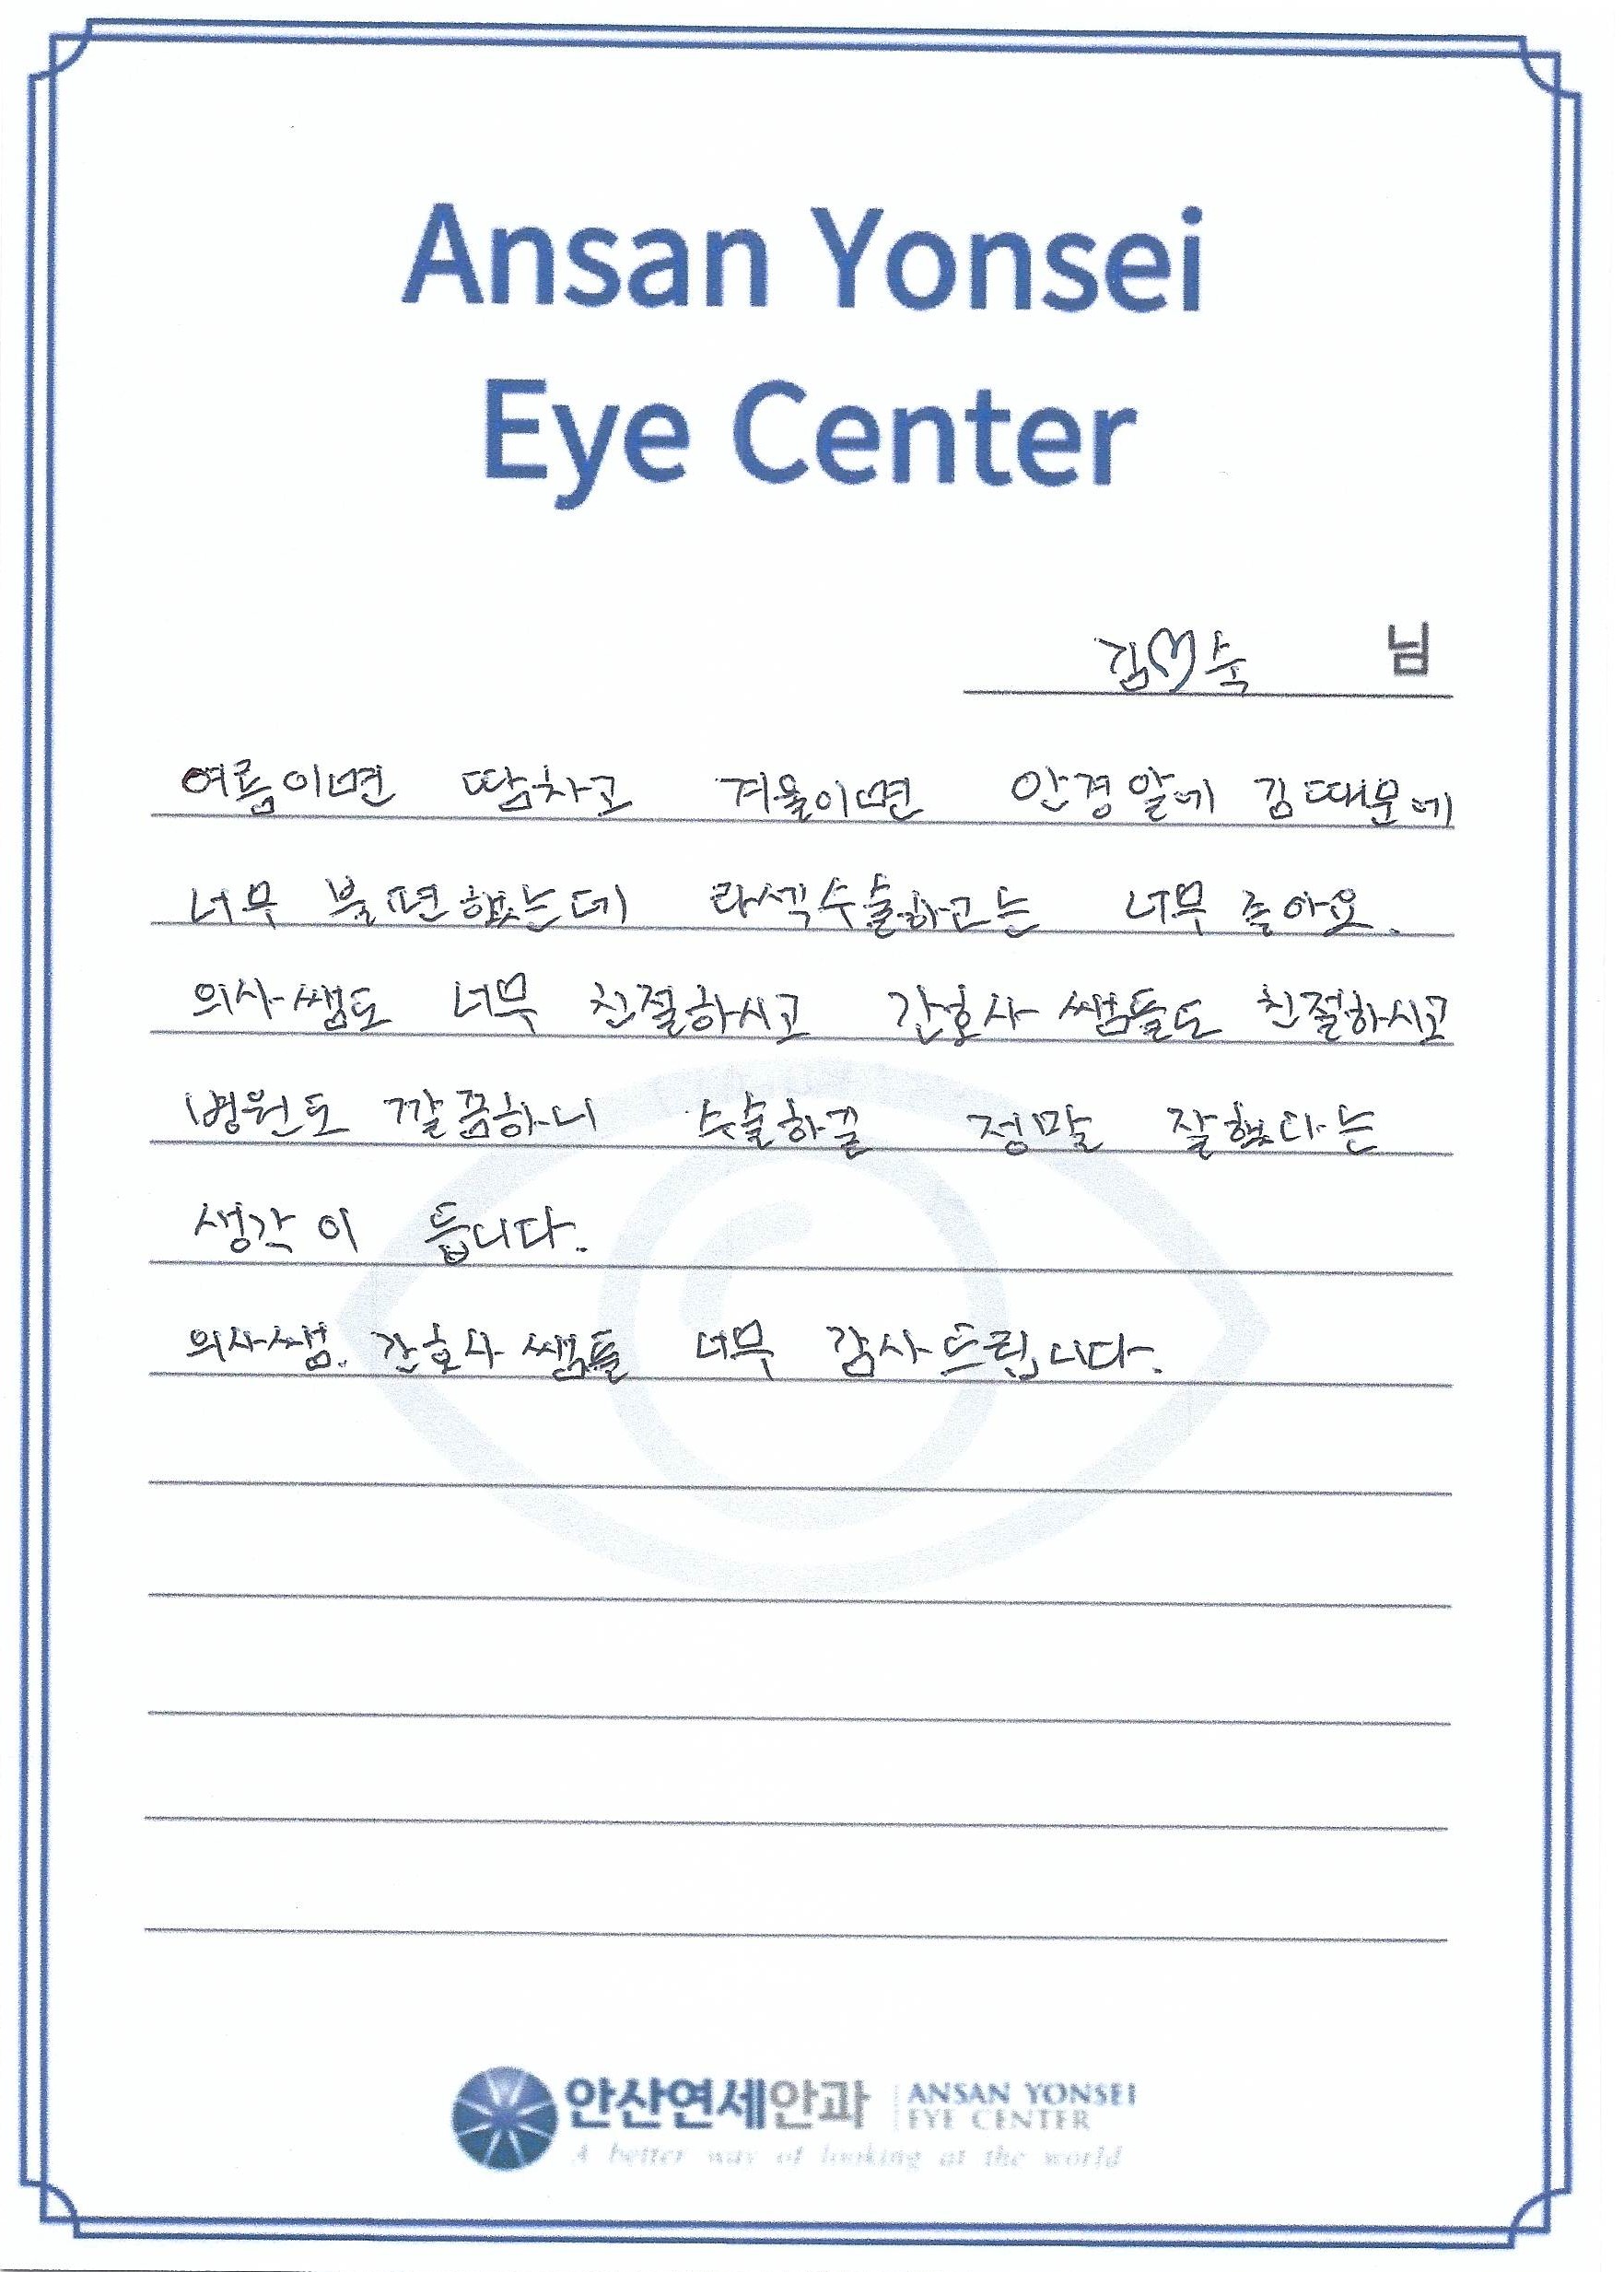 Ansan Yonsei
Eye Center
김♡숙 님
여름이면 땀차고 겨울이면 안경알에 김때문에
너무 불편했는데 라섹수술하고는 너무 좋아요.
의사쌤도 너무 친절하시고 간호사 쌤들도 친절하시고
병원도 깔끔하니 수술하길 정말 잘했다는
생각이 듭니다.
의사쌤. 간호사 쌤들 너무 감사드립니다.
안산연세안과 ANSAN YONSEI
EYE CENTER
A better way of looking at the world